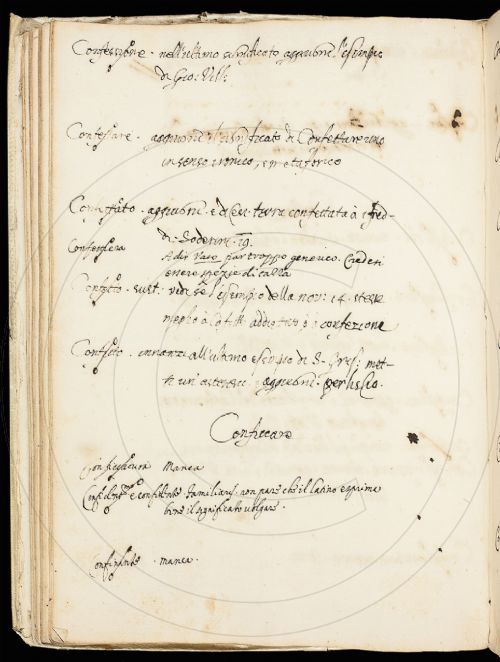 Confezzione. nell'ultimo significato aggiugni l'esempio
di Gio: Vill:
Confettare. aggiugni il significato di Confettare uno
in senso ironico, e metaforico
Confettato. aggiugni. e dicesi terra confettata da i fred-
di. Soderini. 19.
Confettiera
A dir Vaso par troppo generico. Credesi
essere spezie di tazza
Confetto. sust: vedi se l'esempio della nov: 14.
meglio a confezione
Confitto. innanzi all'ultimo esempio di S. Greg: met-
ti un asterisco aggiugni. per
Conficcare
Manca
e confidente familiare. non pare che il latino esprima
bene il significato volgare.
Confinante. manca.